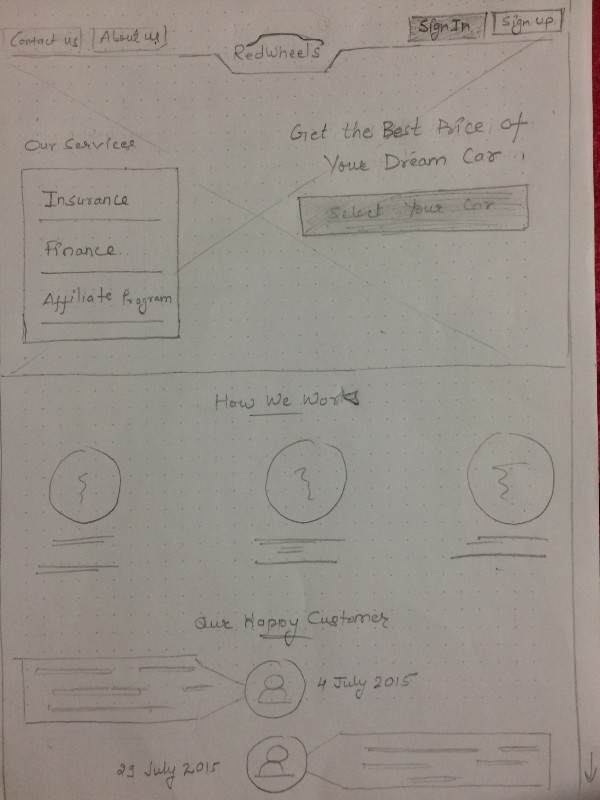 Contact us
About us
RedWheels
Sign In
Sign up
Our Services
Insurance
Finance
Affiliate Program
Get the Best Price of
Your Dream Car
Select Your Car
How We Works
Our Happy Customer
4 July 2015
29 July 2015